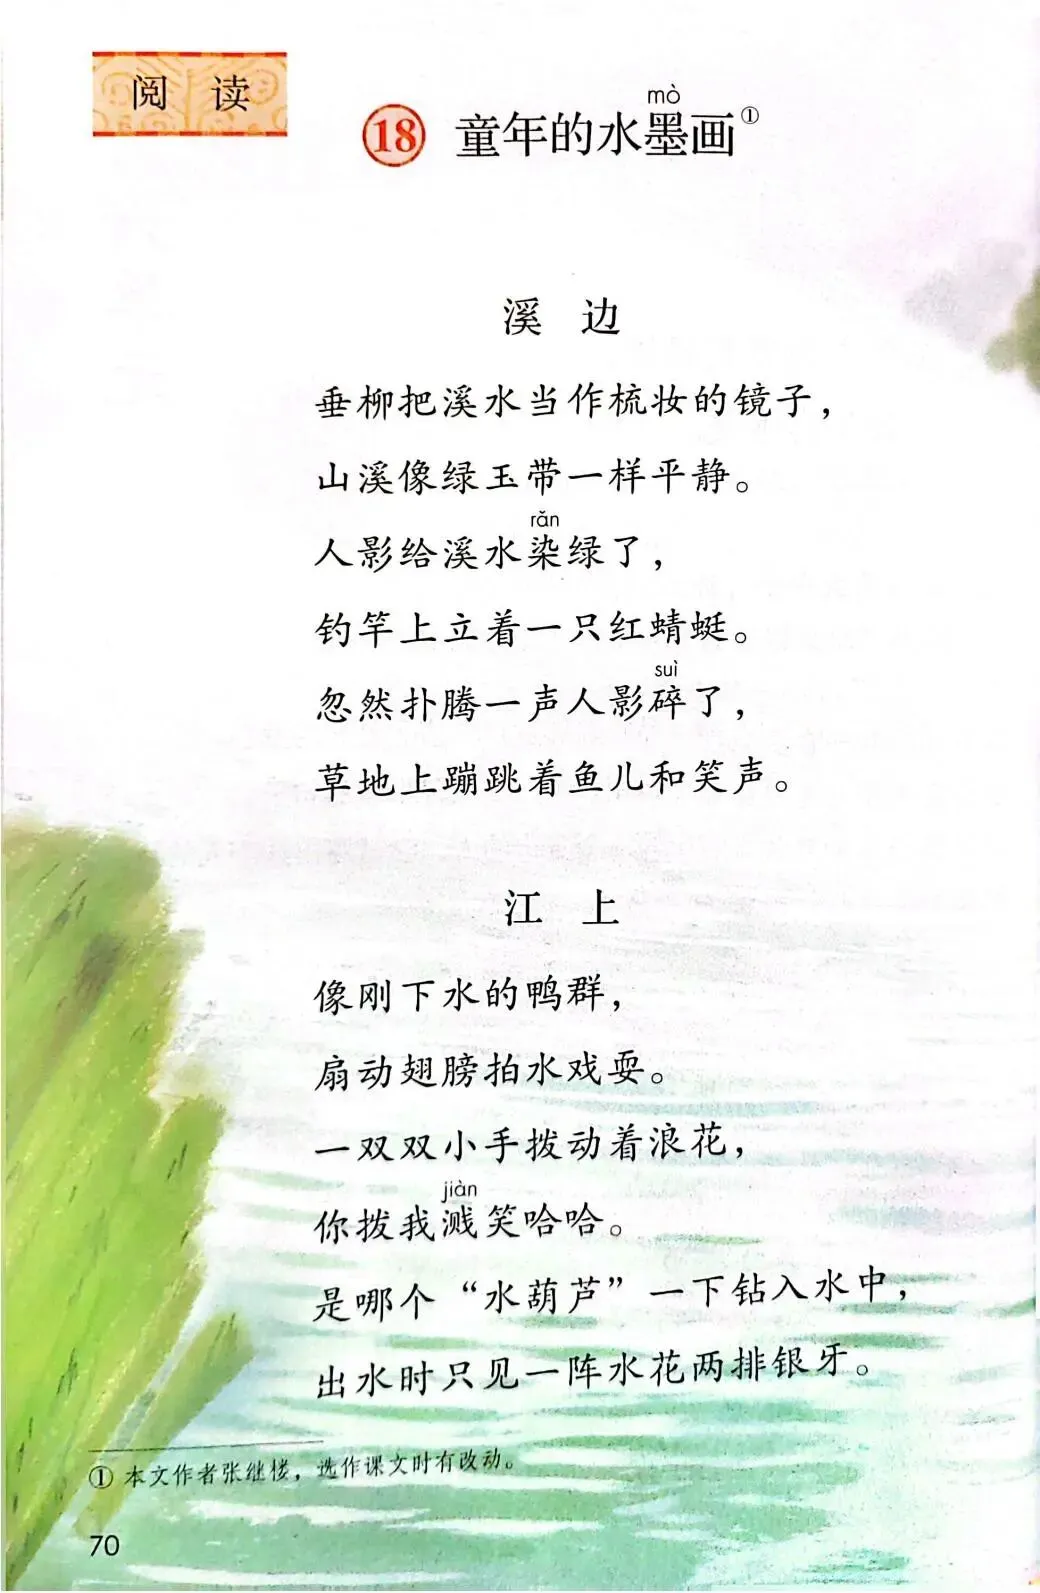 阅 读
mò
18 童年的水墨画①
溪 边
垂柳把溪水当作梳妆的镜子，
山溪像绿玉带一样平静。
rǎn
人影给溪水染绿了，
钓竿上立着一只红蜻蜓。
suì
忽然扑腾一声人影碎了，
草地上蹦跳着鱼儿和笑声。
江 上
像刚下水的鸭群，
扇动翅膀拍水戏耍。
一双双小手拨动着浪花，
jiàn
你拨我溅笑哈哈。
是哪个“水葫芦”一下钻入水中，
出水时只见一阵水花两排银牙。
① 本文作者张继楼，选作课文时有改动。
70